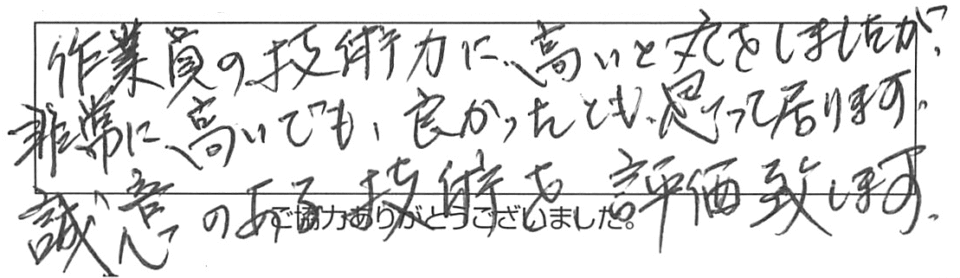 作業員の技術力に、高いと丸をしましたが、
非常に、高いでも、良かったとも、思って居ります。
誠意のある技術を評価致します。
ご協力ありがとうございました。